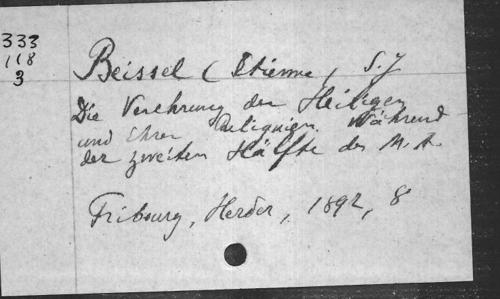 333
118
3
Beissel (Etienne) S.J
Die Verehrung der Heiligen
und Ihrer Reliquien. Während
der zweiten Hälfte des M.A.
Fribourg, Herder, 1892, 8